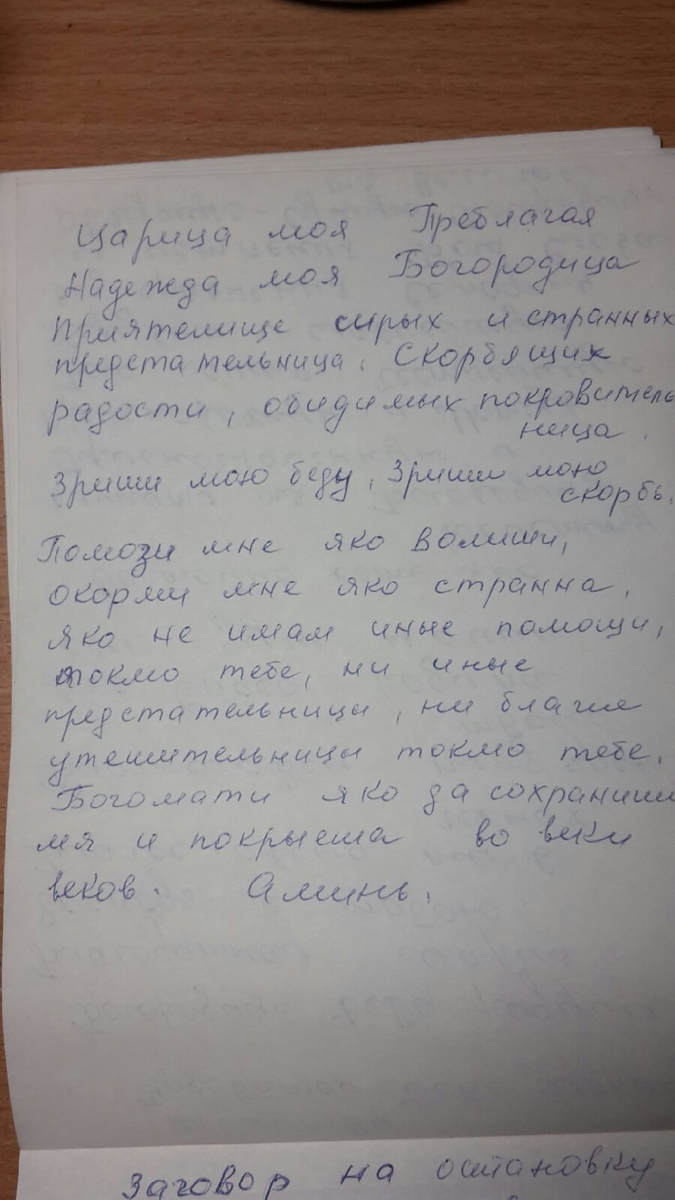 Царица моя Преблагая
Надежда моя Богородица
Приятелище сирых и странных
предстательница. Скорбящих
радости, обидимых покровитель
ница.
Зриши мою беду, Зриши мою
скорбь.
Помози мне яко волиши,
окорми мне яко странна,
яко не имам иные помощи,
токмо тебе, ни иные
предстательницы, ни благие
утешительницы токмо тебе.
Богомати яко да сохраниши
мя и покрыеша во веки
веков. Аминь.
Заговор на остановку